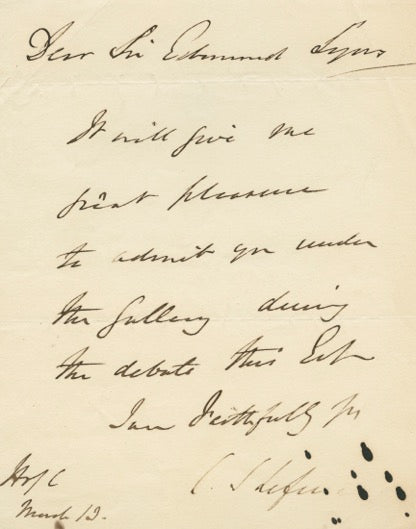 Dear Sir Edmund Lyons
It will give me
great pleasure
to admit you under
the gallery during
the debate this Ev
I am Faithfully yrs
C. S Lefev
H of C
March 12.